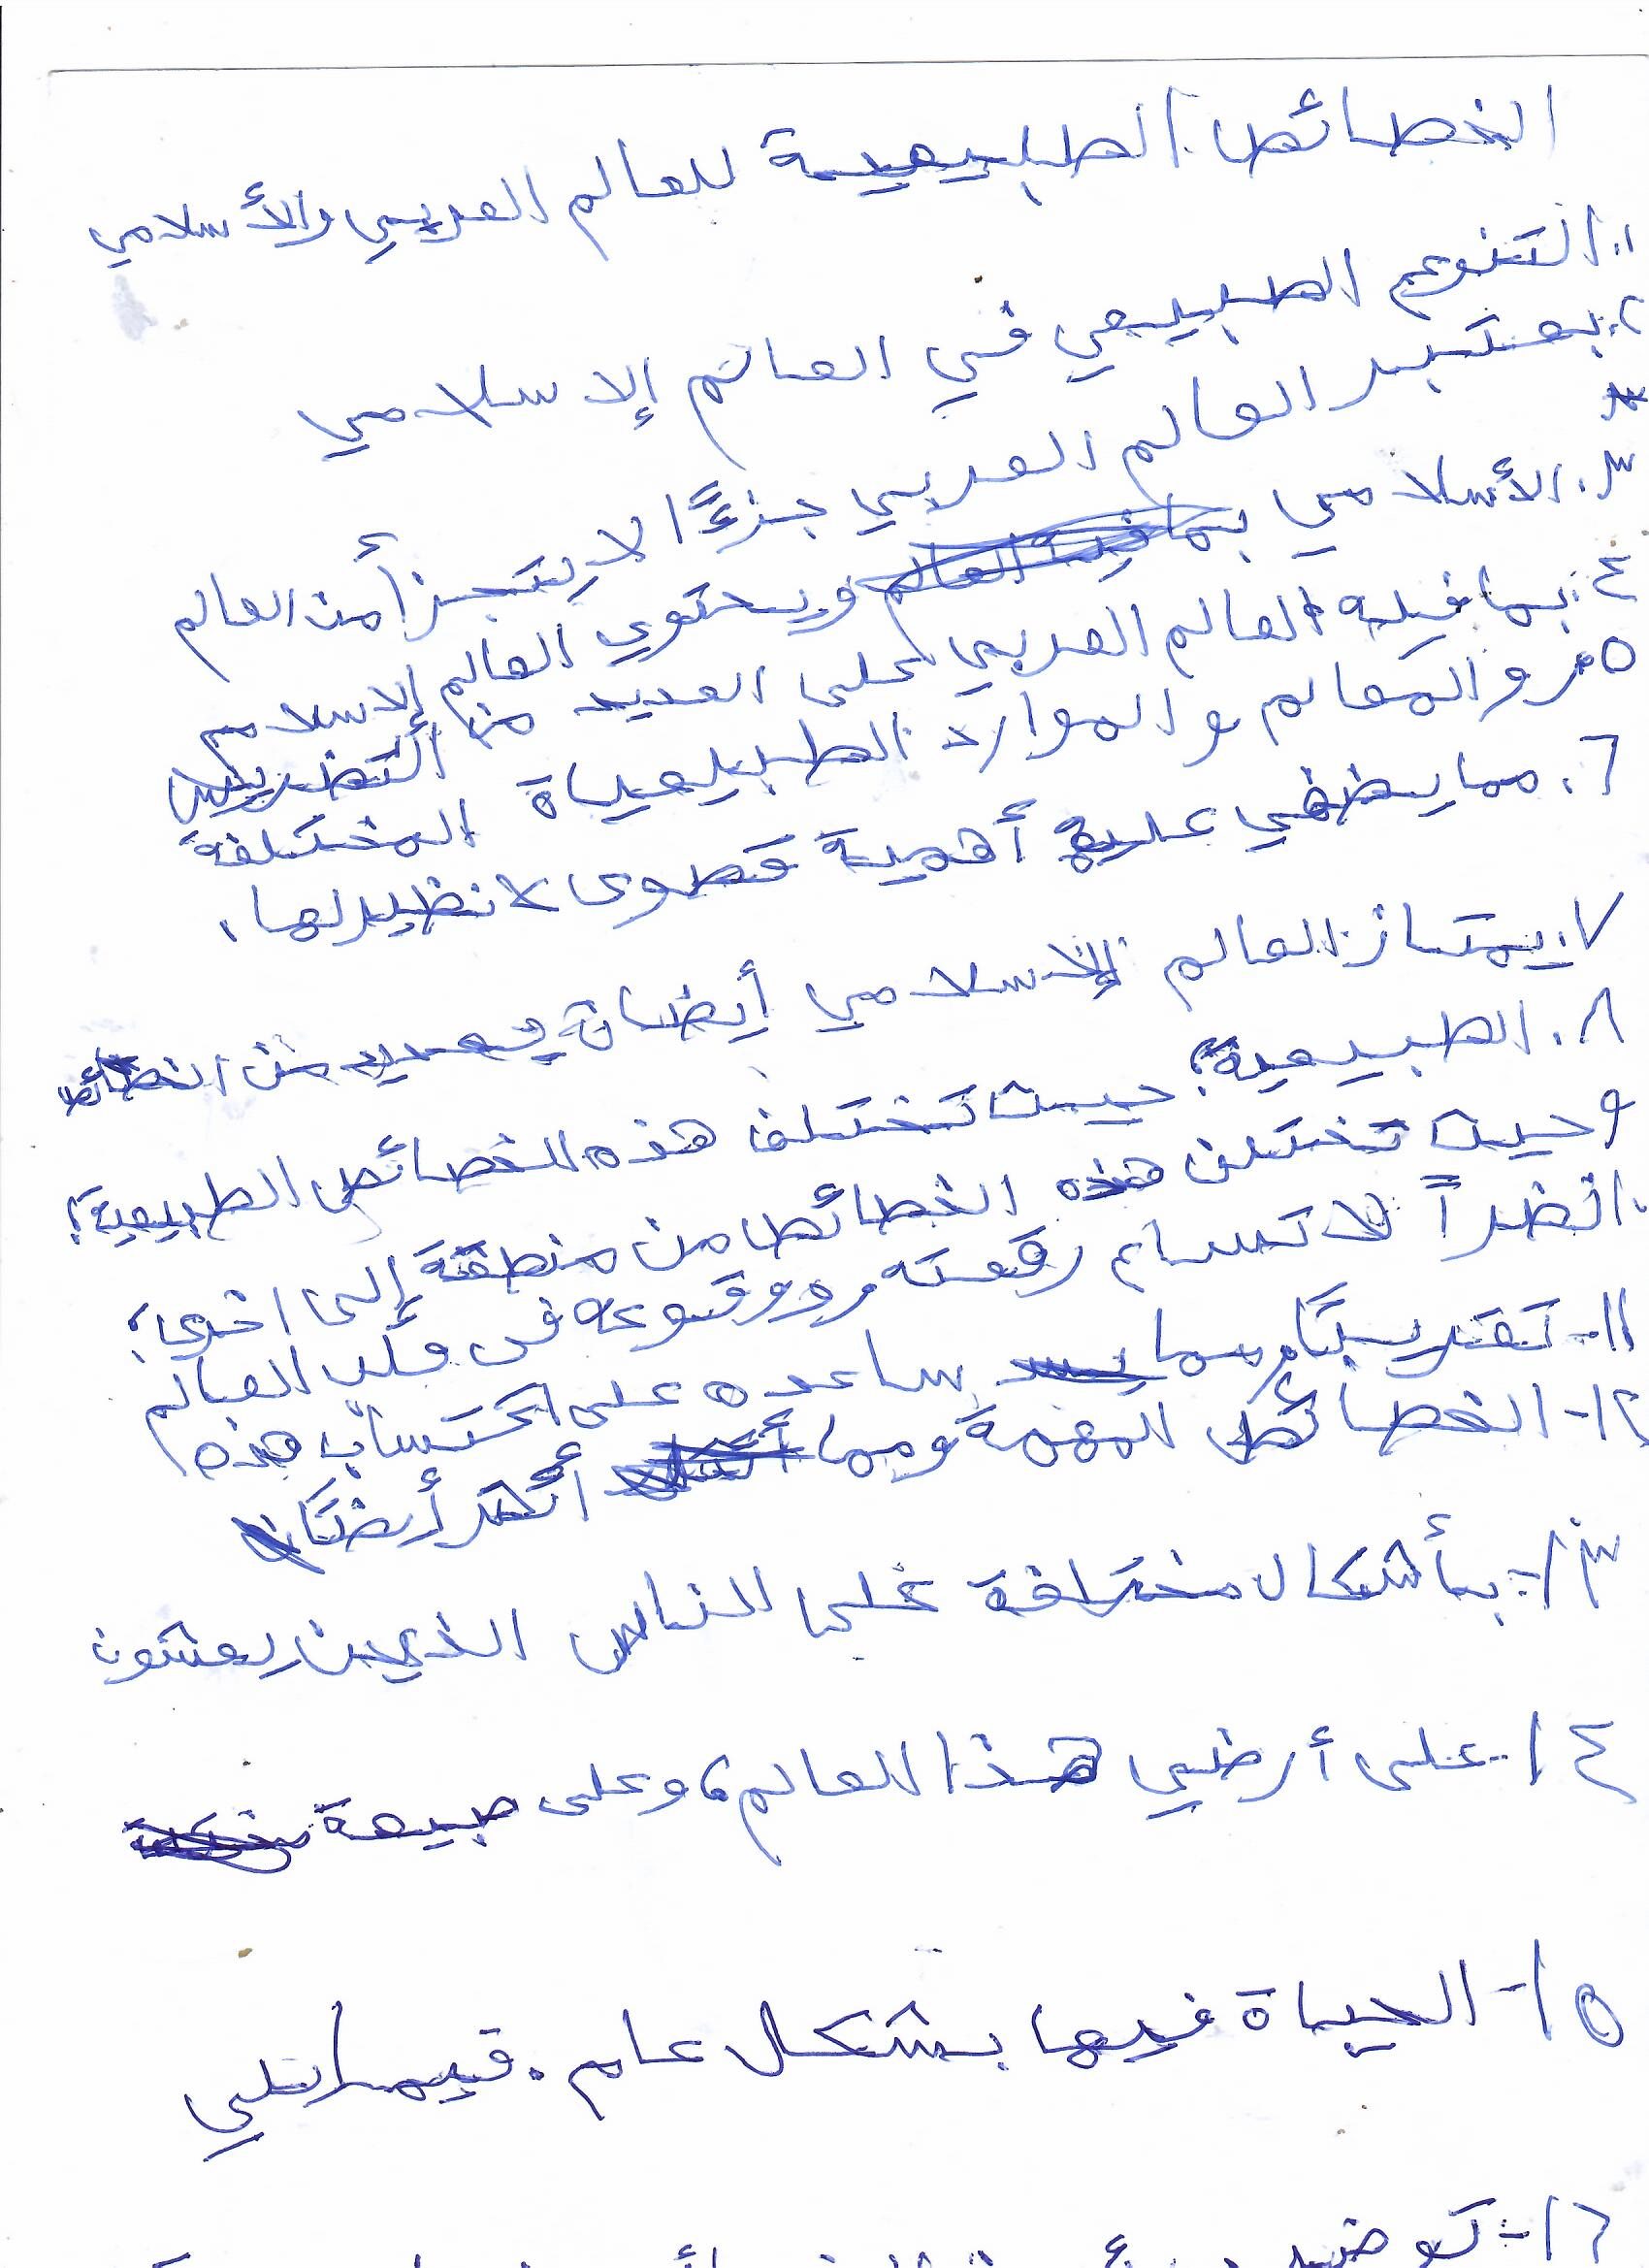 الخصائص الطبيعية للعالم العربي والأسلامي
١. التنوع الطبيعي في العالم إلاسلامي
٢. يعتبر العالم العربي جزءًا لا يتجزأ من العالم
٣. الأسلامي ويحتوي العالم إلاسلام
٤. بما فيه العالم العربي على العديد من التضريس
٥. والمعالم والموارد الطبيعياة المختلفة
٦. مما يضفي عليه أهمية قصوى لا نظير لها.
٧. يمتاز العالم الاسلامي أيضا من الخصائص
٨. الطبيعية؛ حيث تختلف هذه الخصائص الطبيعية؛
٩ وحيث تختلف هذه الخصائص من منطقة إلى اخرى؛
١٠. نضراً لاتساع رقعته ووقوعه في قلب العالم
١١- تقريبًا مما ساعده على اكتساب هذه
١٢- الخصائص المهمة ومما أثر أيضًا
١٣- بأشكال مختلفة على الناس الذين يعشون
١٤- على أرضي هذا العالم، وعلى صبيعة
١٥- الحياة فيها بشكل عام. فيما يلي
١٦- توضيح